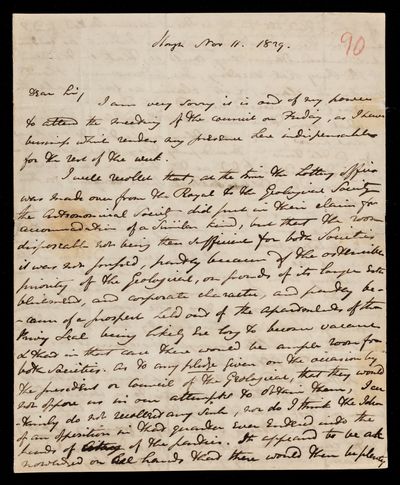 Slough Nov 11. 1829.
90
Dear Sir,
I am very sorry it is out of my power
to attend the meeting of the council on Friday, as I have
business which renders my presence here indispensable
for the rest of the week.
I well recollect that, at the time the Lottery office
was made over from the Royal to the Geological Society
the Astronomical Society did put in their claim for
accommodation of a similar kind, but that the room
disposable not being then sufficient for both Societies
it was not pressed, partly because of the ostensible
priority of the Geological, on grounds of its longer esta
blishment, and corporate character, and partly be-
-cause of a prospect held out of the apartments of the
Privy Seal being likely ere long to become vacant
& that in that case there would be ample room for
both Societies. As to any pledge given on the occasion by
the president or council of the Geological, that they would
not oppose us in our attempts to obtain them, I cer
tainly do not recollect any such, nor do I think the idea
of an opposition in that quarter ever entered into the
heads of of the parties. It appeared to be ack
nowledged on all hands that there would then be plenty